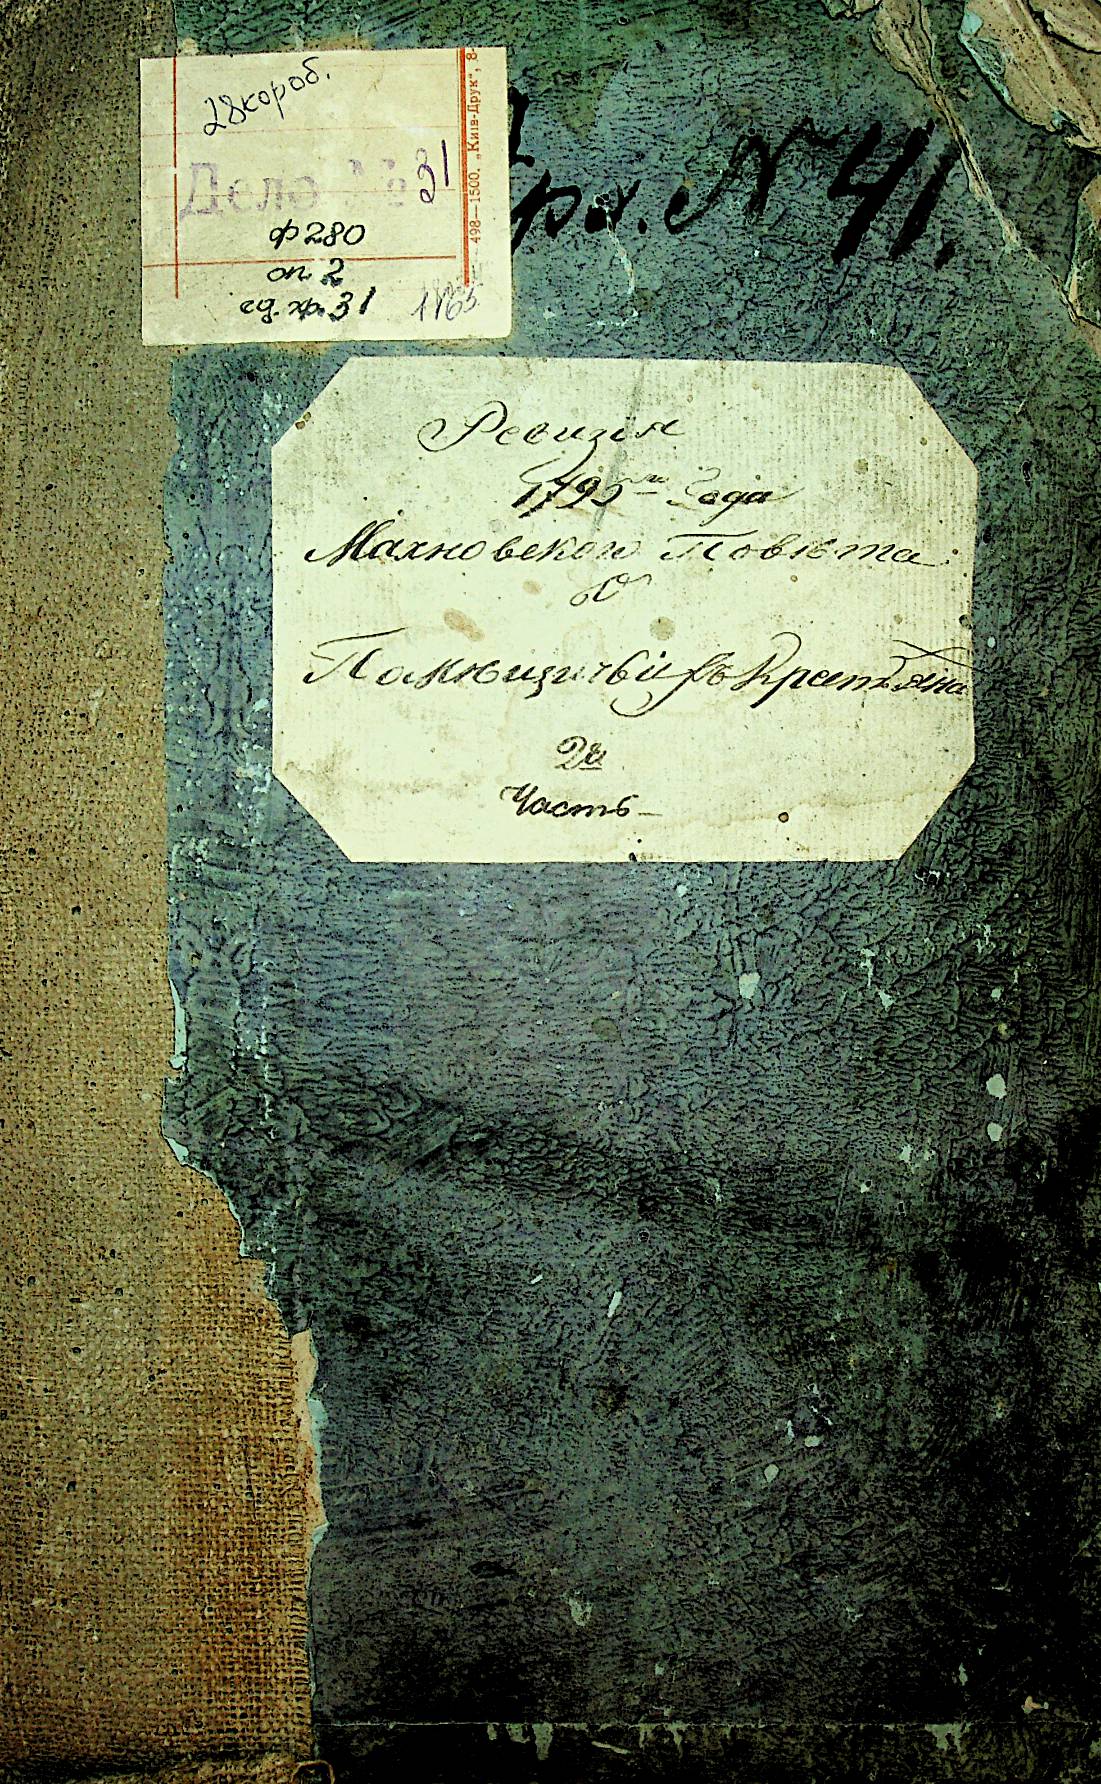 28 короб.
Дело № 31
ф 280
оп 2
ед. хр. 31
498—1500. „Київ-Друк", 8-
№ 41.
Ревизія
1795го Года
Махновского Повѣта
О
Помѣщичьихъ Крестьяна
2я
Часть